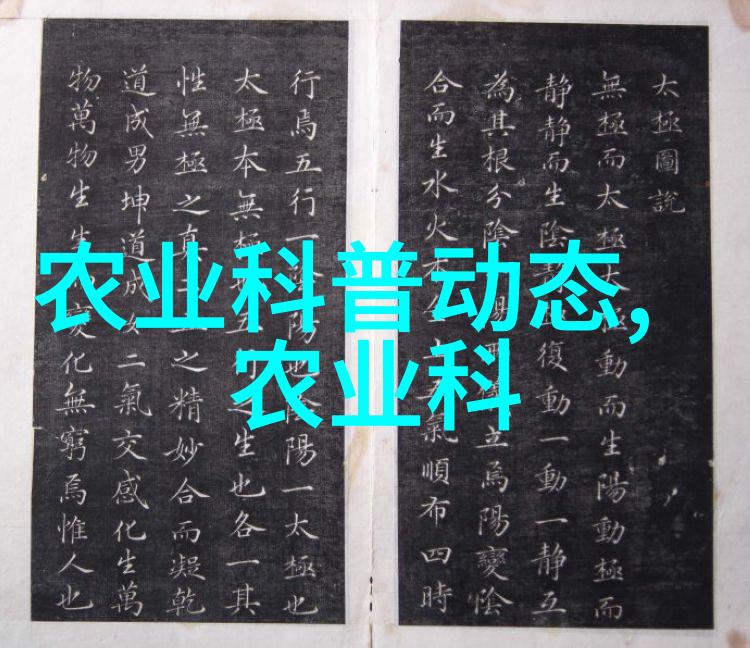 太極圖說
無極而太極太極動而生陽動極而
静静而生陰復動一動一静互
為其根分陰陽立焉陽變陰
合而生水火木氣順布四時
行焉五行一陰陽也陰陽一太極也
太極本無極五之生也各一其
性無極之真之精妙合而凝乾
道成男坤道成女二氣交感化生萬
物萬物生生變化無窮焉惟人也
农业科普动态,
农业科